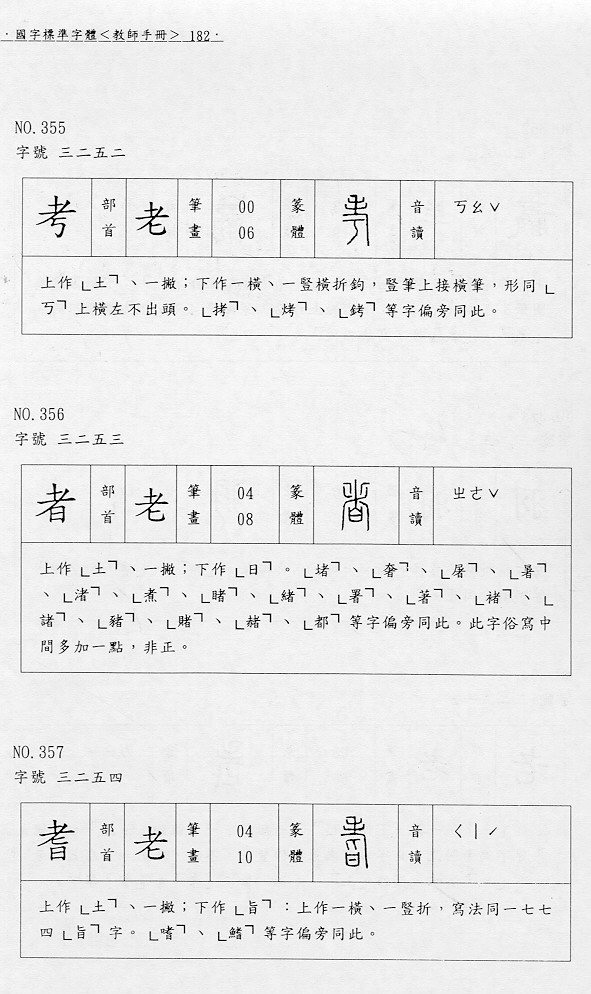 ·國字標準字體<教師手冊> 182·
NO.355
字號 三二五二
考 部首 老 筆畫 00 06 篆體 音讀 ㄎㄠˇ
上作﹂土﹁、一撇；下作一橫、一豎橫折鉤，豎筆上接橫筆，形同﹂
丂﹁上橫左不出頭。﹂拷﹁、﹂烤﹁、﹂銬﹁等字偏旁同此。
NO.356
字號 三二五三
者 部首 老 筆畫 04 08 篆體 音讀 ㄓㄜˇ
上作﹂土﹁、一撇；下作﹂日﹁。﹂堵﹁、﹂奢﹁、﹂屠﹁、﹂暑﹁
、﹂渚﹁、﹂煮﹁、﹂睹﹁、﹂緒﹁、﹂署﹁、﹂著﹁、﹂褚﹁、﹂
諸﹁、﹂豬﹁、﹂賭﹁、﹂赭﹁、﹂都﹁等字偏旁同此。此字俗寫中
間多加一點，非正。
NO.357
字號 三二五四
耆 部首 老 筆畫 04 10 篆體 音讀 ㄑㄧˊ
上作﹂土﹁、一撇；下作﹂旨﹁：上作一橫、一豎折，寫法同一七七
四﹂旨﹁字。﹂嗜﹁、﹂鰭﹁等字偏旁同此。